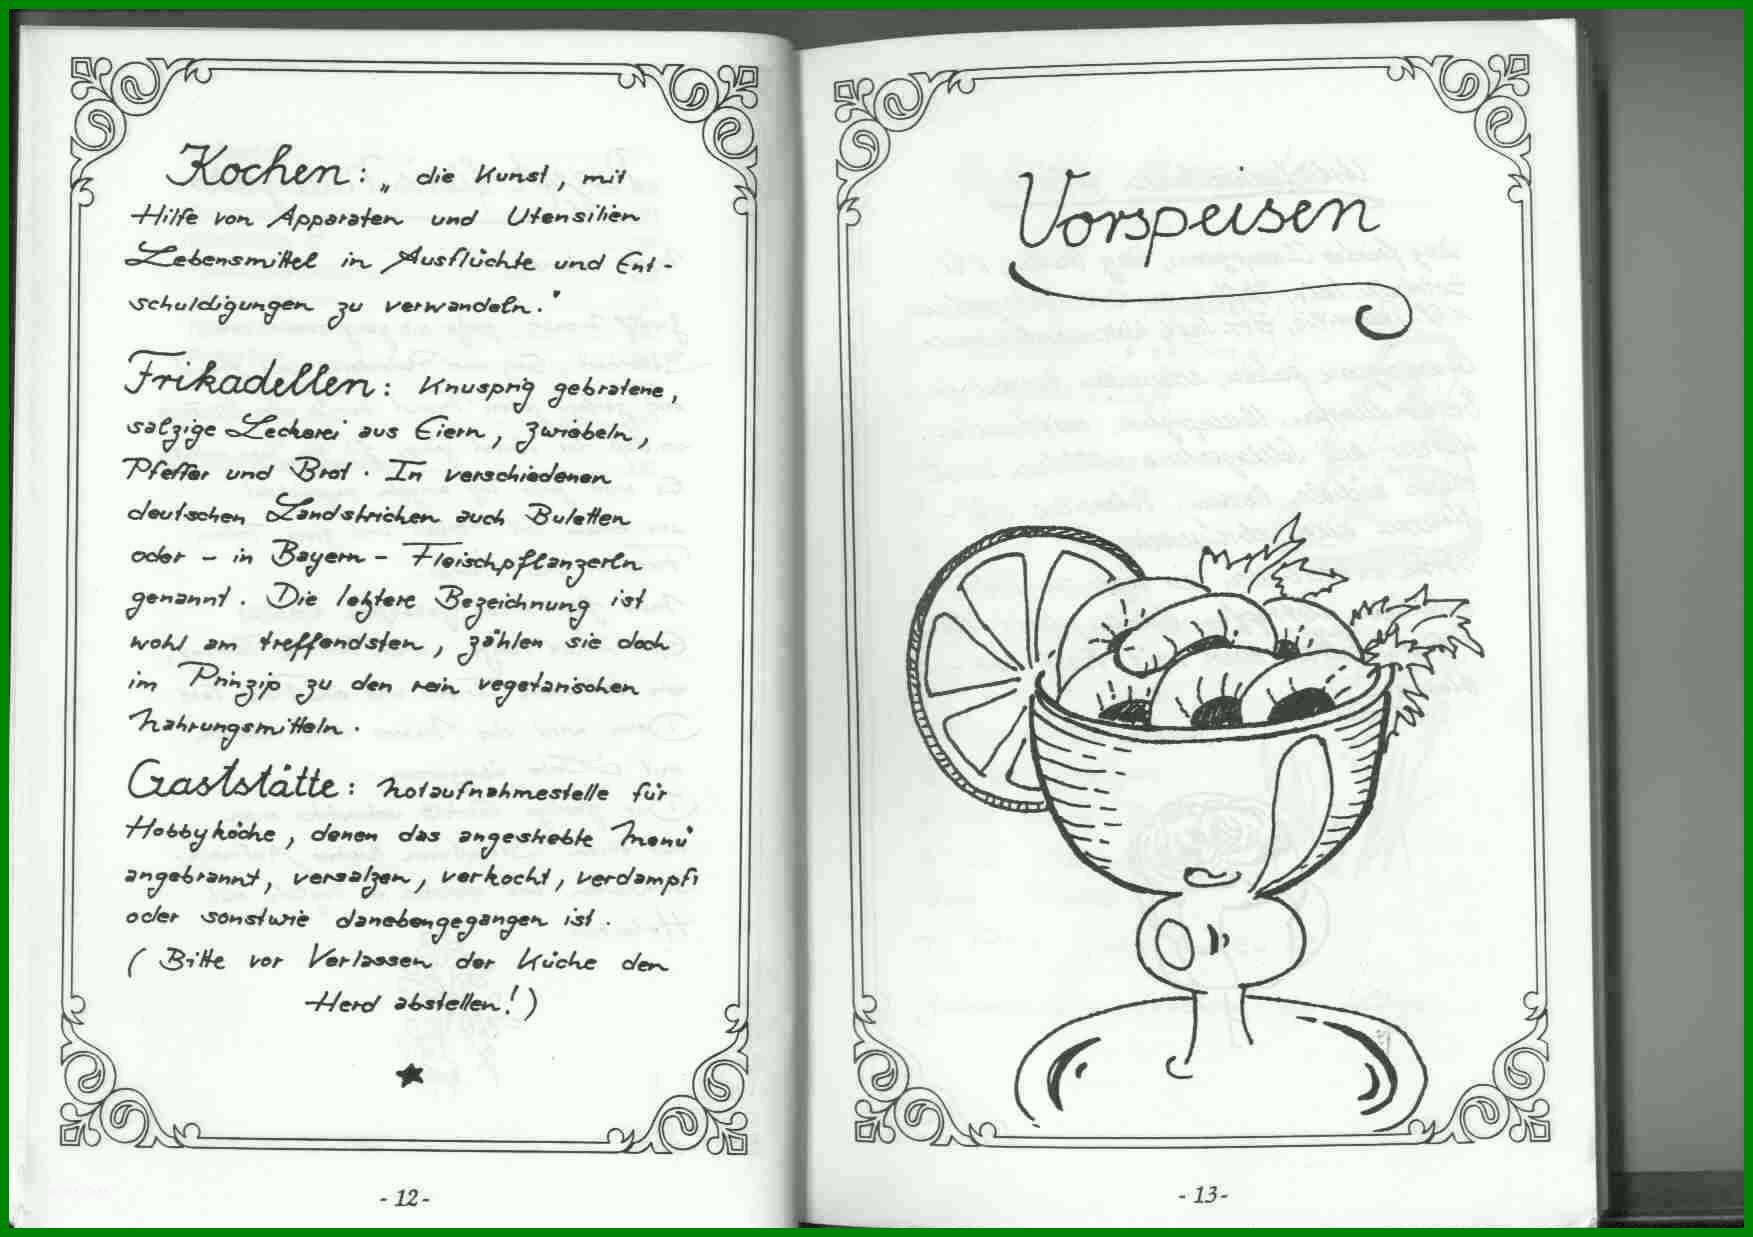 Kochen: „ die Kunst, mit
Hilfe von Apparaten und Utensilien
Lebensmittel in Ausflüchte und Ent-
schuldigungen zu verwandeln."
Frikadellen: Knusprig gebratene,
salzige Leckerei aus Eiern, Zwiebeln,
Pfeffer und Brot. In verschiedenen
deutschen Landstrichen auch Buletten
oder - in Bayern - Fleischpflanzerln
genannt. Die letztere Bezeichnung ist
wohl am treffendsten, zählen sie doch
im Prinzip zu den rein vegetarischen
Nahrungsmitteln.
Gaststätte: Notaufnahmestelle für
Hobbyköche, denen das angestrebte Menü
angebrannt, versalzen, verkocht, verdampft
oder sonstwie danebengegangen ist.
( Bitte vor Verlassen der Küche den
Herd abstellen! )
- 12 -
Vorspeisen
- 13 -